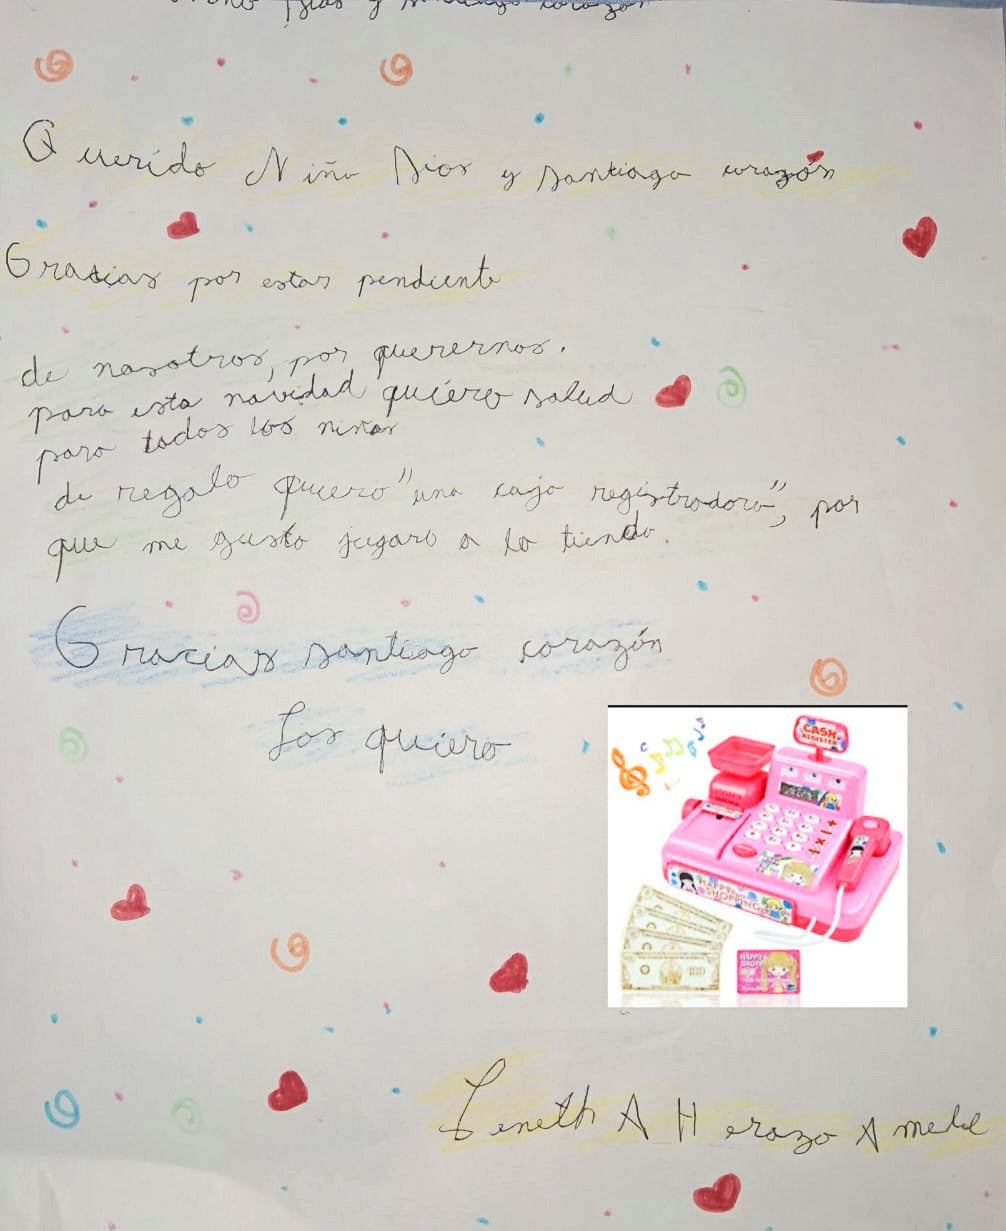 y
Querido Niño Dios y santiago corazón
Gracias por estar pendiente
de nosotros, por querernos.
para esta navidad quiero salud
para todos los niños
de regalo quiero "una caja registradora", por
que me gusta jugar a la tienda.
Gracias santiago corazón
Los quiero
CASH
REGISTER
HAPPY
SHOPPING
100
HAPPY
SHOPP
A Herazo